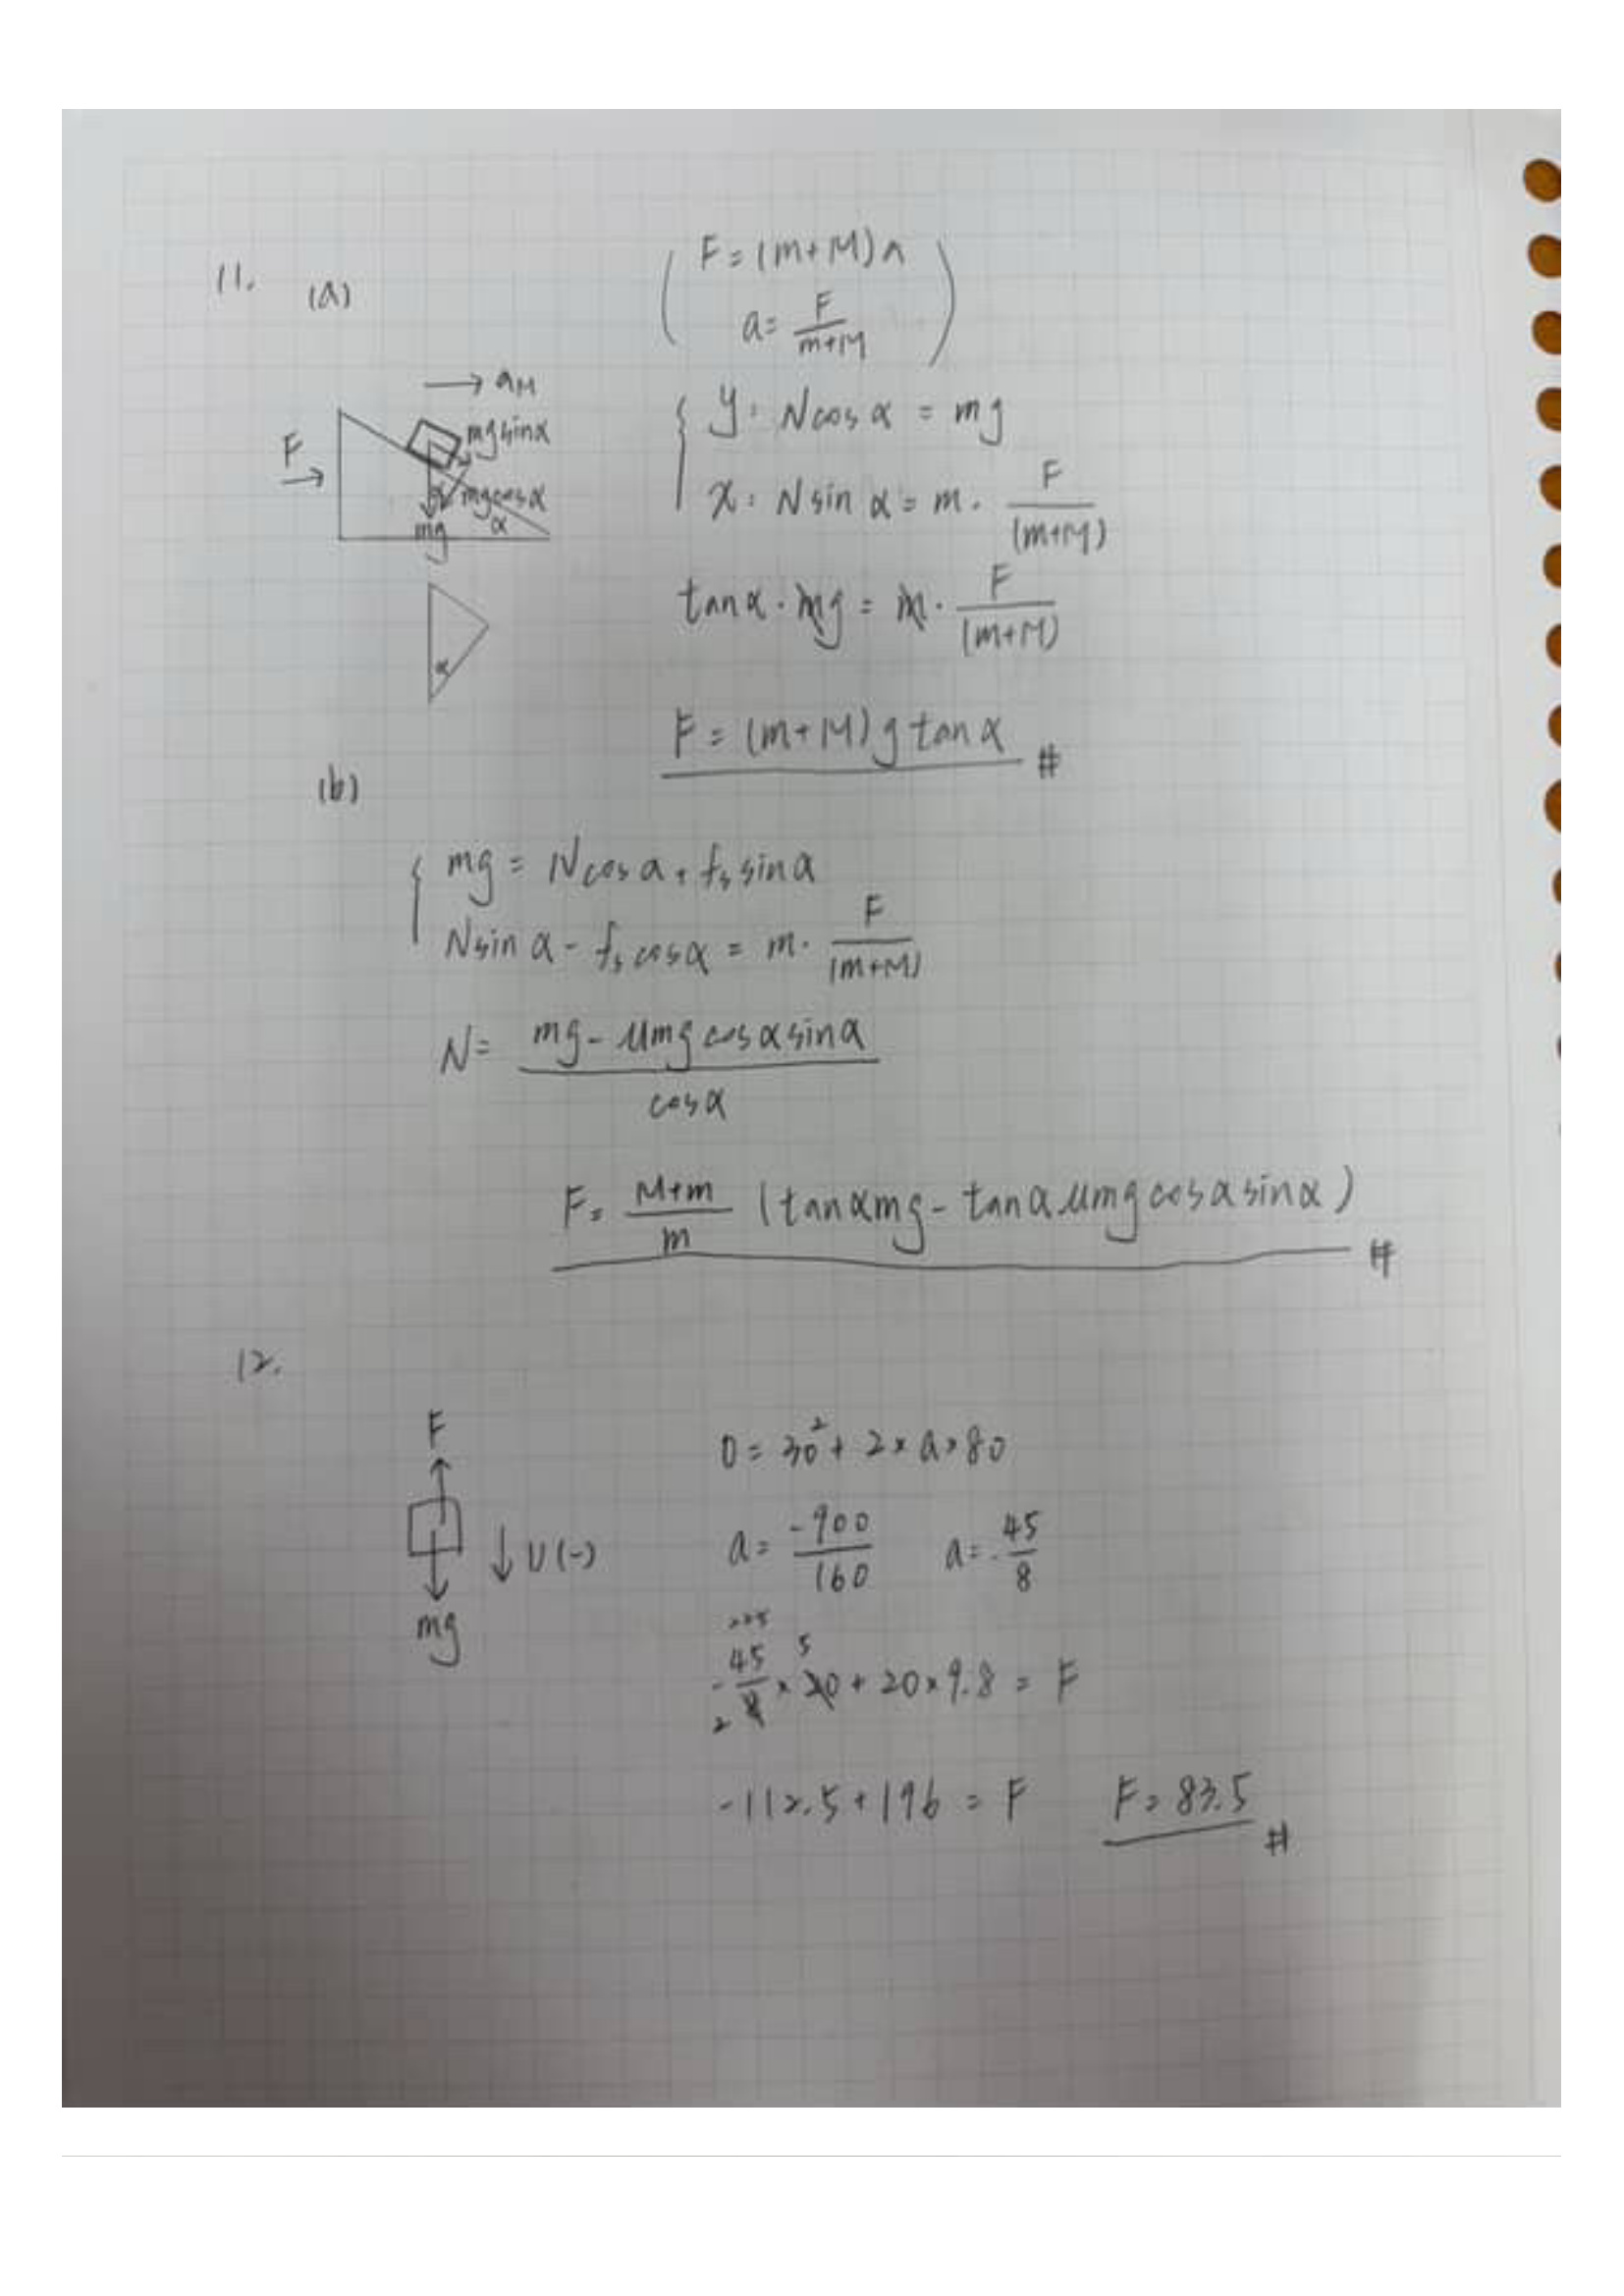 11. (a)
( F = (m+M) a
a = F/(m+M) )
→ aM
F →
mg sinα
mg cosα
α
α
mg
α
{ y: N cos α = mg
x: N sin α = m · F/(m+M)
tanα · mg = m · F/(m+M)
F = (m+M) g tanα #
(b)
{ mg = N cos α + fs sin α
N sin α - fs cos α = m · F/(m+M)
N = (mg - μmg cos α sin α)/cos α
F = (M+m)/m (tanα mg - tanα μmg cos α sin α) #
12.
F
↓ V (-)
mg
0 = 30² + 2 × a × 80
a = -900/160 a = -45/8
225
5
-45/8 × 20 + 20 × 9.8 = F
2
-112.5 + 196 = F F = 83.5 #